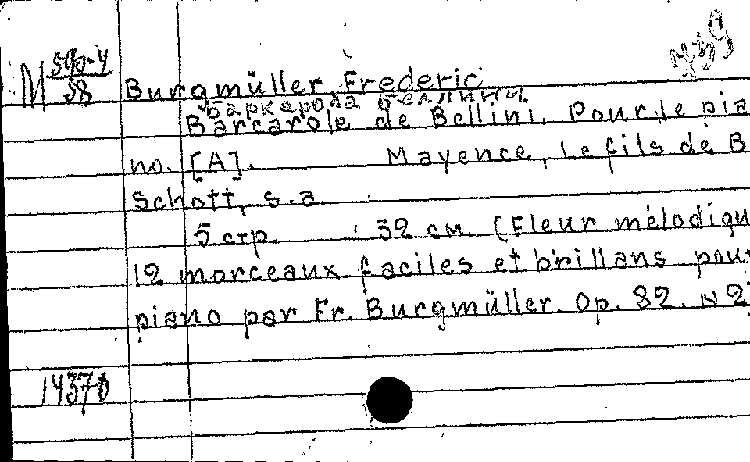 M 590-4
58
Burgmüller, Frederic
Баркарола Беллини.
Barcarole de Bellini. Pour le pia
no. [A]. Mayence, Le fils de B
Schott, s.a.
5 стр. 32 см. (Fleur mélodiqu
12 morceaux faciles et brillans pour
piano par Fr. Burgmüller. Op. 82. N 2